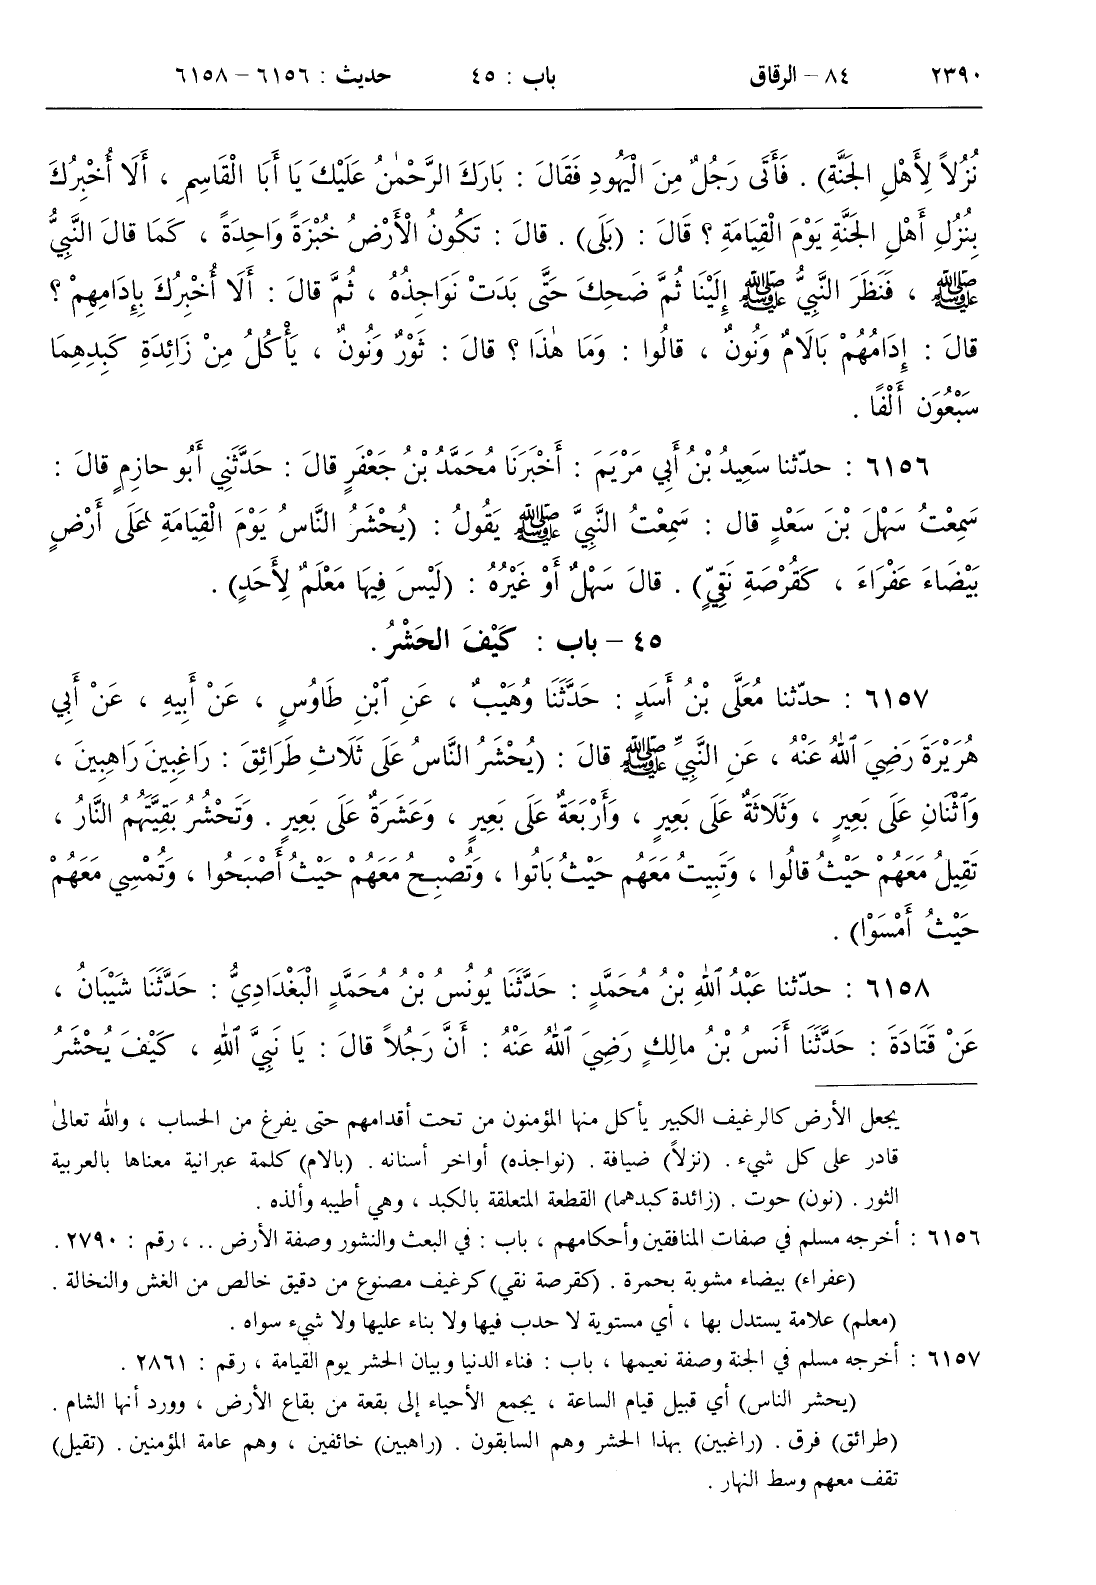 ٢٣٩٠ ٨٤ – الرقاق باب : ٤٥ حديث : ٦١٥٦ – ٦١٥٨
نُزُلاً لِأَهْلِ الجَنَّةِ) . فَأَتَى رَجُلٌ مِنَ الْيَهُودِ فَقَالَ : بَارَكَ الرَّحْمٰنُ عَلَيْكَ يَا أَبَا الْقَاسِمِ ، أَلَا أُخْبِرُكَ
بِنُزُلِ أَهْلِ الجَنَّةِ يَوْمَ الْقِيَامَةِ ؟ قالَ : (بَلَى) . قالَ : تَكُونُ الْأَرْضُ خُبْزَةً وَاحِدَةً ، كَمَا قالَ النَّبِيُّ
ﷺ ، فَنَظَرَ النَّبِيُّ ﷺ إِلَيْنَا ثُمَّ ضَحِكَ حَتَّى بَدَتْ نَوَاجِذُهُ ، ثُمَّ قالَ : أَلَا أُخْبِرُكَ بِإِدَامِهِمْ ؟
قالَ : إِدَامُهُمْ بَالَامٌ وَنُونٌ ، قالُوا : وَمَا هٰذَا ؟ قالَ : ثَوْرٌ وَنُونٌ ، يَأْكُلُ مِنْ زَائِدَةِ كَبِدِهِمَا
سَبْعُونَ أَلْفًا .
٦١٥٦ : حدّثنا سَعِيدُ بْنُ أَبِي مَرْيَمَ : أَخْبَرَنَا مُحَمَّدُ بْنُ جَعْفَرٍ قالَ : حَدَّثَنِي أَبُو حازِمٍ قالَ :
سَمِعْتُ سَهْلَ بْنَ سَعْدٍ قال : سَمِعْتُ النَّبِيَّ ﷺ يَقُولُ : (يُحْشَرُ النَّاسُ يَوْمَ الْقِيَامَةِ عَلَى أَرْضٍ
بَيْضَاءَ عَفْرَاءَ ، كَقُرْصَةِ نَقِيٍّ) . قالَ سَهْلٌ أَوْ غَيْرُهُ : (لَيْسَ فِيهَا مَعْلَمٌ لِأَحَدٍ) .
٤٥ – باب : كَيْفَ الحَشْرُ .
٦١٥٧ : حدّثنا مُعَلَّى بْنُ أَسَدٍ : حَدَّثَنَا وُهَيْبٌ ، عَنِ ٱبْنِ طَاوُسٍ ، عَنْ أَبِيهِ ، عَنْ أَبِي
هُرَيْرَةَ رَضِيَ ٱللهُ عَنْهُ ، عَنِ النَّبِيِّ ﷺ قالَ : (يُحْشَرُ النَّاسُ عَلَى ثَلَاثِ طَرَائِقَ : رَاغِبِينَ رَاهِبِينَ ،
وَٱثْنَانِ عَلَى بَعِيرٍ ، وَثَلَاثَةٌ عَلَى بَعِيرٍ ، وَأَرْبَعَةٌ عَلَى بَعِيرٍ ، وَعَشَرَةٌ عَلَى بَعِيرٍ . وَتَحْشُرُ بَقِيَّتَهُمُ النَّارُ ،
تَقِيلُ مَعَهُمْ حَيْثُ قالُوا ، وَتَبِيتُ مَعَهُم حَيْثُ بَاتُوا ، وَتُصْبِحُ مَعَهُمْ حَيْثُ أَصْبَحُوا ، وَتُمْسِي مَعَهُمْ
حَيْثُ أَمْسَوْا) .
٦١٥٨ : حدّثنا عَبْدُ ٱللهِ بْنُ مُحَمَّدٍ : حَدَّثَنَا يُونُسُ بْنُ مُحَمَّدٍ الْبَغْدَادِيُّ : حَدَّثَنَا شَيْبَانُ ،
عَنْ قَتَادَةَ : حَدَّثَنَا أَنَسُ بْنُ مالِكٍ رَضِيَ ٱللهُ عَنْهُ : أَنَّ رَجُلاً قالَ : يَا نَبِيَّ ٱللهِ ، كَيْفَ يُحْشَرُ
يجعل الأرض كالرغيف الكبير يأكل منها المؤمنون من تحت أقدامهم حتى يفرغ من الحساب ، والله تعالىٰ
قادر على كل شيء . (نزلاً) ضيافة . (نواجذه) أواخر أسنانه . (بالام) كلمة عبرانية معناها بالعربية
الثور . (نون) حوت . (زائدة كبدهما) القطعة المتعلقة بالكبد ، وهي أطيبه وألذه .
٦١٥٦ : أخرجه مسلم في صفات المنافقين وأحكامهم ، باب : في البعث والنشور وصفة الأرض .. ، رقم : ٢٧٩٠ .
(عفراء) بيضاء مشوبة بحمرة . (كقرصة نقي) كرغيف مصنوع من دقيق خالص من الغش والنخالة .
(معلم) علامة يستدل بها ، أي مستوية لا حدب فيها ولا بناء عليها ولا شيء سواه .
٦١٥٧ : أخرجه مسلم في الجنة وصفة نعيمها ، باب : فناء الدنيا وبيان الحشر يوم القيامة ، رقم : ٢٨٦١ .
(يحشر الناس) أي قبيل قيام الساعة ، يجمع الأحياء إلى بقعة من بقاع الأرض ، وورد أنها الشام .
(طرائق) فرق . (راغبين) بهذا الحشر وهم السابقون . (راهبين) خائفين ، وهم عامة المؤمنين . (تقيل)
تقف معهم وسط النهار .